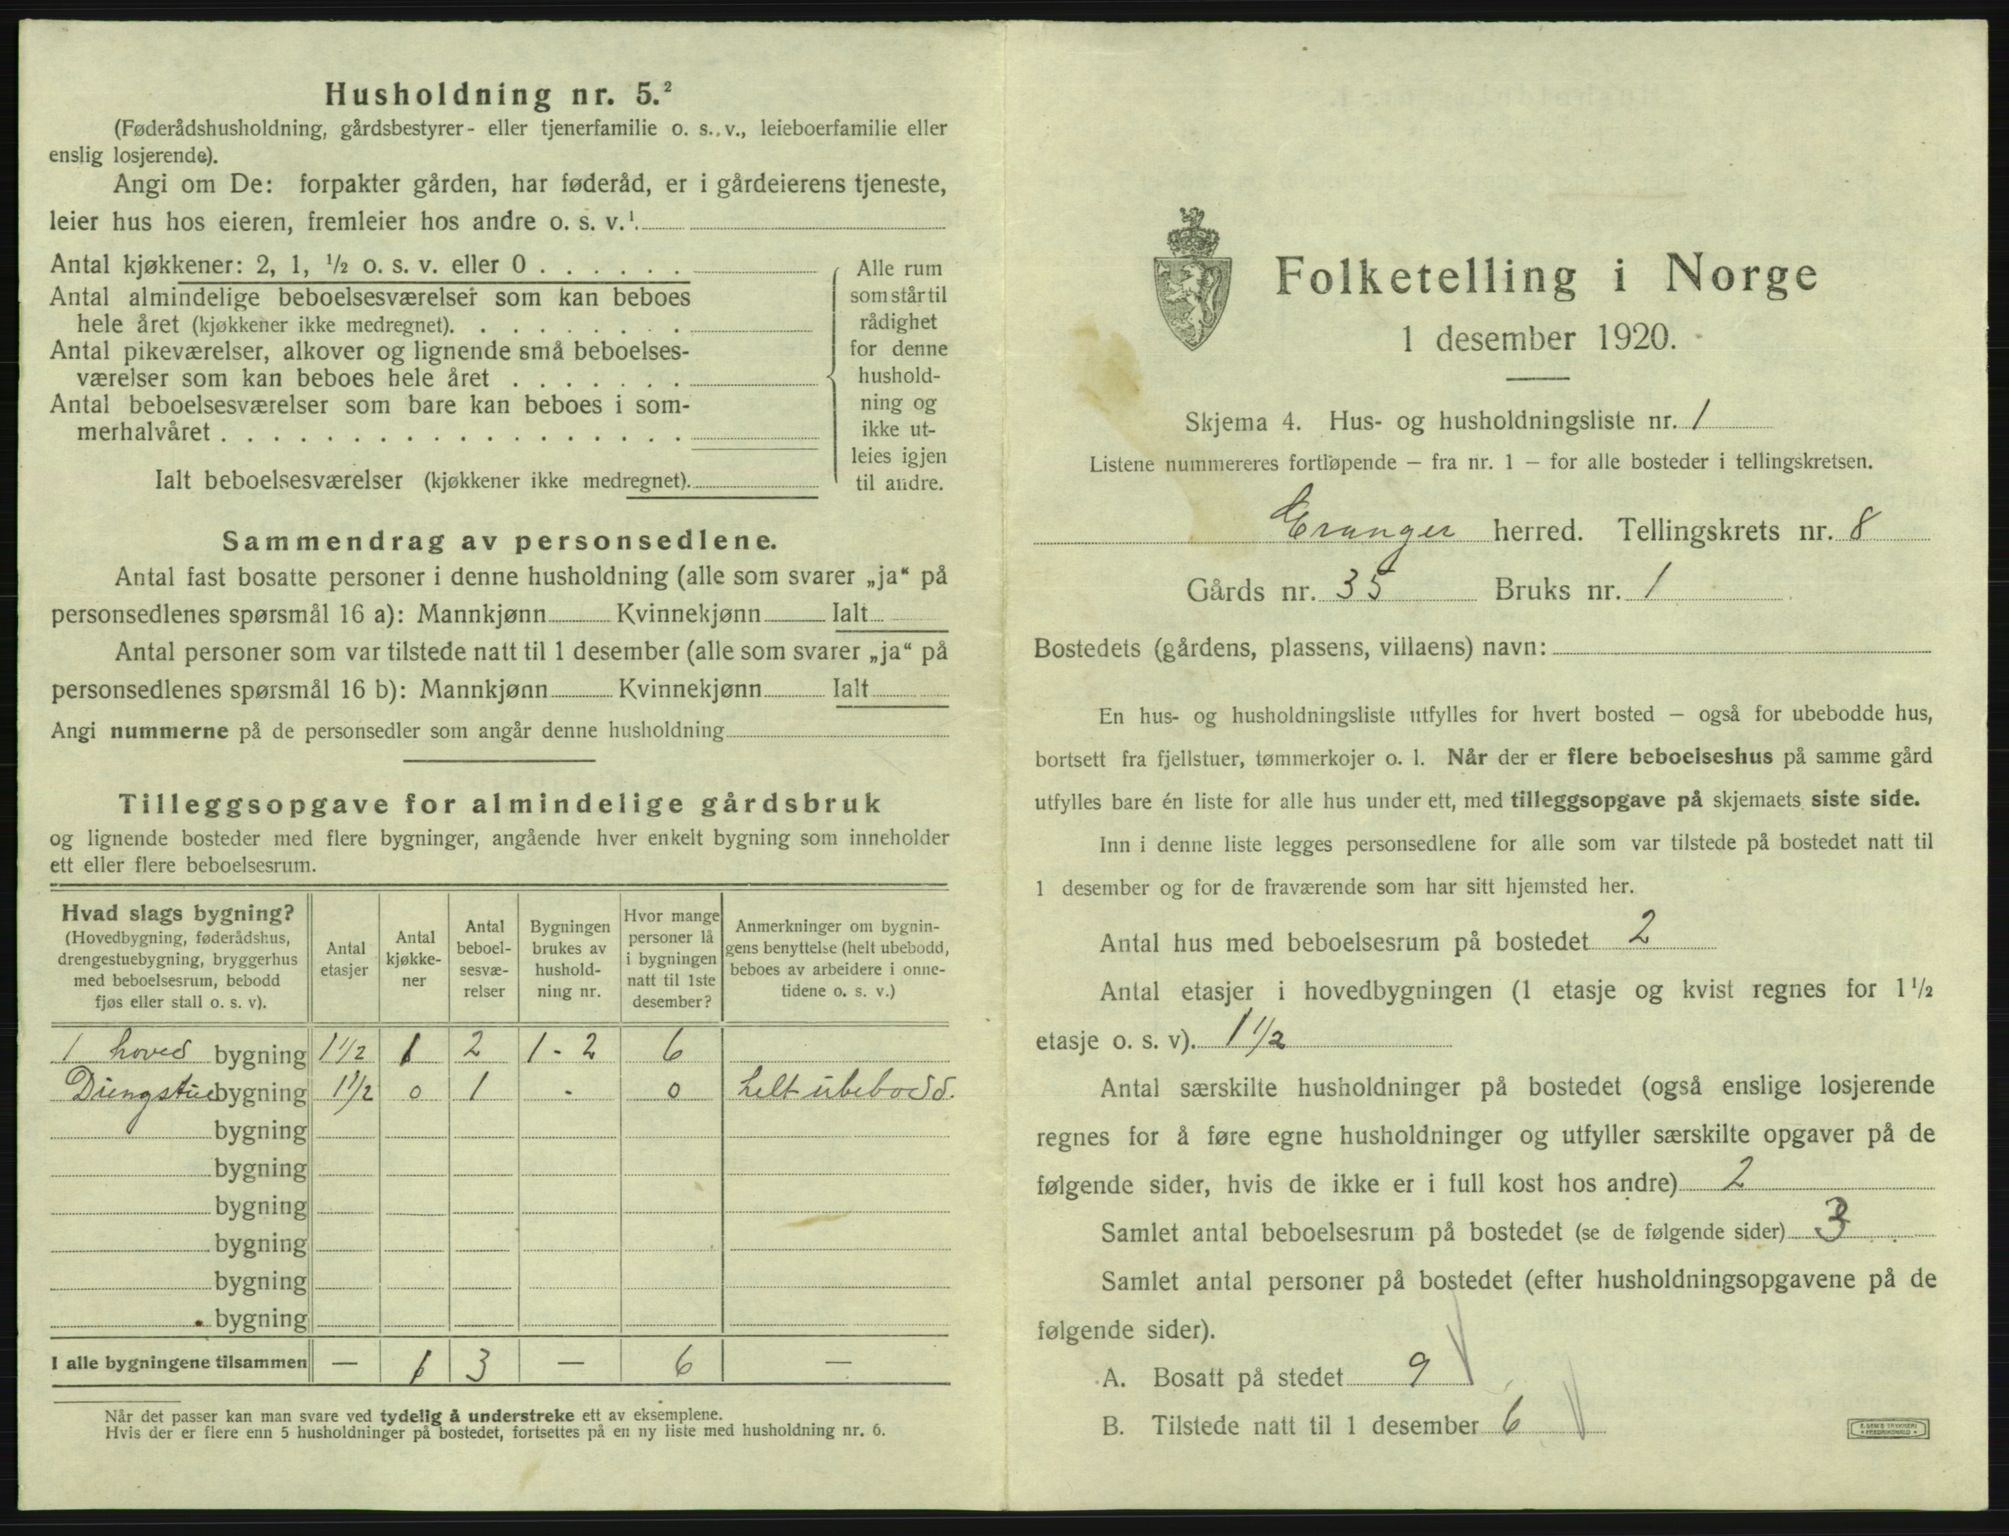 Husholdning nr. 5.²
(Føderådshusholdning, gårdsbestyrer- eller tjenerfamilie o. s. v., leieboerfamilie eller
enslig losjerende).
Angi om De: forpakter gården, har føderåd, er i gårdeierens tjeneste,
leier hus hos eieren, fremleier hos andre o. s. v.¹
Antal kjøkkener: 2, 1, ½ o. s. v. eller 0 . . . . . .
Antal almindelige beboelsesværelser som kan beboes
hele året (kjøkkener ikke medregnet). . . . . . . . .
Antal pikeværelser, alkover og lignende små beboelses-
værelser som kan beboes hele året . . . . . . .
Antal beboelsesværelser som bare kan beboes i som-
merhalvåret . . . . . . . . . . . . . . . . . .
Ialt beboelsesværelser (kjøkkener ikke medregnet).
Alle rum
som står til
rådighet
for denne
hushold-
ning og
ikke ut-
leies igjen
til andre.
Sammendrag av personsedlene.
Antal fast bosatte personer i denne husholdning (alle som svarer „ja“ på
personsedlenes spørsmål 16 a): Mannkjønn Kvinnekjønn Ialt
Antal personer som var tilstede natt til 1 desember (alle som svarer „ja“ på
personsedlenes spørsmål 16 b): Mannkjønn Kvinnekjønn Ialt
Angi nummerne på de personsedler som angår denne husholdning
Tilleggsopgave for almindelige gårdsbruk
og lignende bosteder med flere bygninger, angående hver enkelt bygning som inneholder
ett eller flere beboelsesrum.
Hvad slags bygning?
(Hovedbygning, føderådshus,
drengestuebygning, bryggerhus
med beboelsesrum, bebodd
fjøs eller stall o. s. v).
Antal
etasjer
Antal
kjøkke-
ner
Antal
beboel-
sesvæ-
relser
Bygningen
brukes av
hushold-
ning nr.
Hvor mange
personer lå
i bygningen
natt til 1ste
desember?
Anmerkninger om bygnin-
gens benyttelse (helt ubebodd,
beboes av arbeidere i onne-
tidene o. s. v.)
1 hoved bygning 1 1/2 1 2 1 - 2 6
Diengstue bygning 1 1/2 0 1 - 0 helt ubebodd.
bygning
bygning
bygning
bygning
bygning
bygning
I alle bygningene tilsammen — 1 3 — 6 —
Når det passer kan man svare ved tydelig å understreke ett av eksemplene.
Hvis der er flere enn 5 husholdninger på bostedet, fortsettes på en ny liste med husholdning nr. 6.
Folketelling i Norge
1 desember 1920.
Skjema 4. Hus- og husholdningsliste nr. 1
Listene nummereres fortløpende – fra nr. 1 – for alle bosteder i tellingskretsen.
Eranger herred. Tellingskrets nr. 8
Gårds nr. 35 Bruks nr. 1
Bostedets (gårdens, plassens, villaens) navn:
En hus- og husholdningsliste utfylles for hvert bosted – også for ubebodde hus,
bortsett fra fjellstuer, tømmerkojer o. l. Når der er flere beboelseshus på samme gård
utfylles bare én liste for alle hus under ett, med tilleggsopgave på skjemaets siste side.
Inn i denne liste legges personsedlene for alle som var tilstede på bostedet natt til
1 desember og for de fraværende som har sitt hjemsted her.
Antal hus med beboelsesrum på bostedet 2
Antal etasjer i hovedbygningen (1 etasje og kvist regnes for 1½
etasje o. s. v). 1 1/2
Antal særskilte husholdninger på bostedet (også enslige losjerende
regnes for å føre egne husholdninger og utfyller særskilte opgaver på de
følgende sider, hvis de ikke er i full kost hos andre) 2
Samlet antal beboelsesrum på bostedet (se de følgende sider) 3
Samlet antal personer på bostedet (efter husholdningsopgavene på de
følgende sider).
A. Bosatt på stedet 9
B. Tilstede natt til 1 desember 6